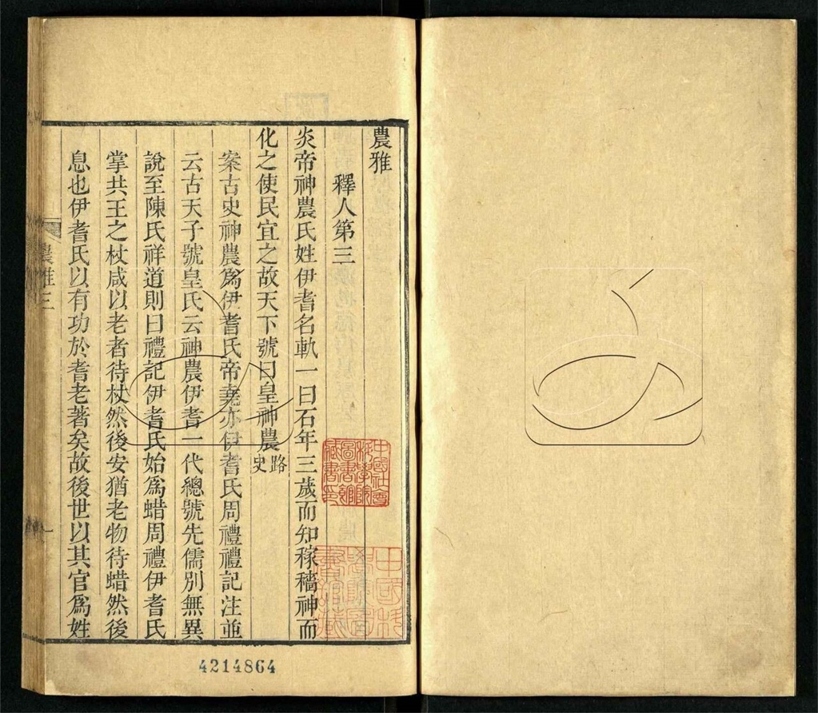 農雅
釋人第三
炎帝神農氏姓伊耆名軌一曰石年三歲而知稼穡神而
化之使民宜之故天下號曰皇神農路史
案古史神農爲伊耆氏帝堯亦伊耆氏周禮禮記注並
云古天子號皇氏云神農伊耆一代總號先儒別無異
說至陳氏祥道則曰禮記伊耆氏始爲蜡周禮伊耆氏
掌共王之杖咸以老者待杖然後安猶老物待蜡然後
息也伊耆氏以有功於耆老著矣故後世以其官爲姓
農雅三
一
4214864